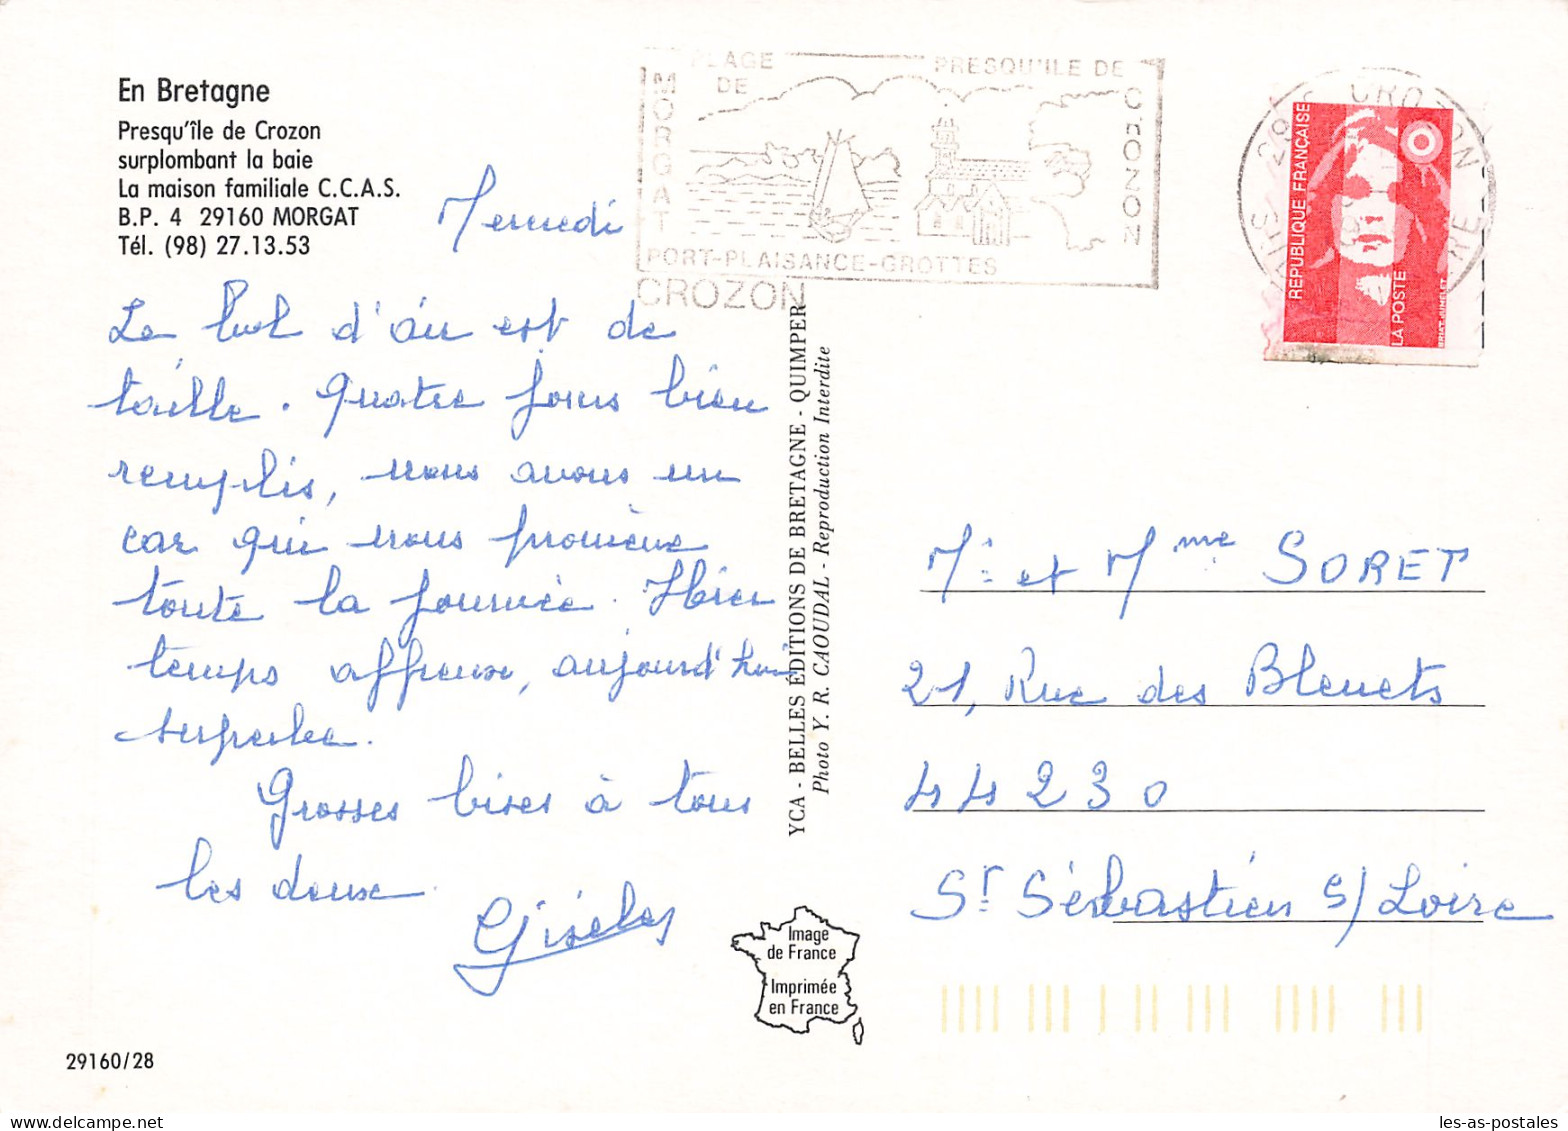 En Bretagne
Presqu'île de Crozon
surplombant la baie
La maison familiale C.C.A.S.
B.P. 4 29160 MORGAT
Tél. (98) 27.13.53
PLAGE DE MORGAT
PRESQU'ILE DE CROZON
PORT-PLAISANCE-GROTTES
CROZON
29 CROZON
REPUBLIQUE FRANÇAISE
LA POSTE
Mercredi
Le bol d'air est de
taille. Quatre jours bien
remplis, nous avons un
car qui nous promène
toute la journée. Hier
temps affreux, aujourd'hui
superbe.
Grosses bises à tous
les deux.
YCA - BELLES ÉDITIONS DE BRETAGNE - QUIMPER
Photo Y. R. CAOUDAL - Reproduction Interdite
Mr et Mme SORET
21, Rue des Bleuets
44230
St Sébastien s/ Loire
Image
de France
Imprimée
en France
29160/28
les-as-postales